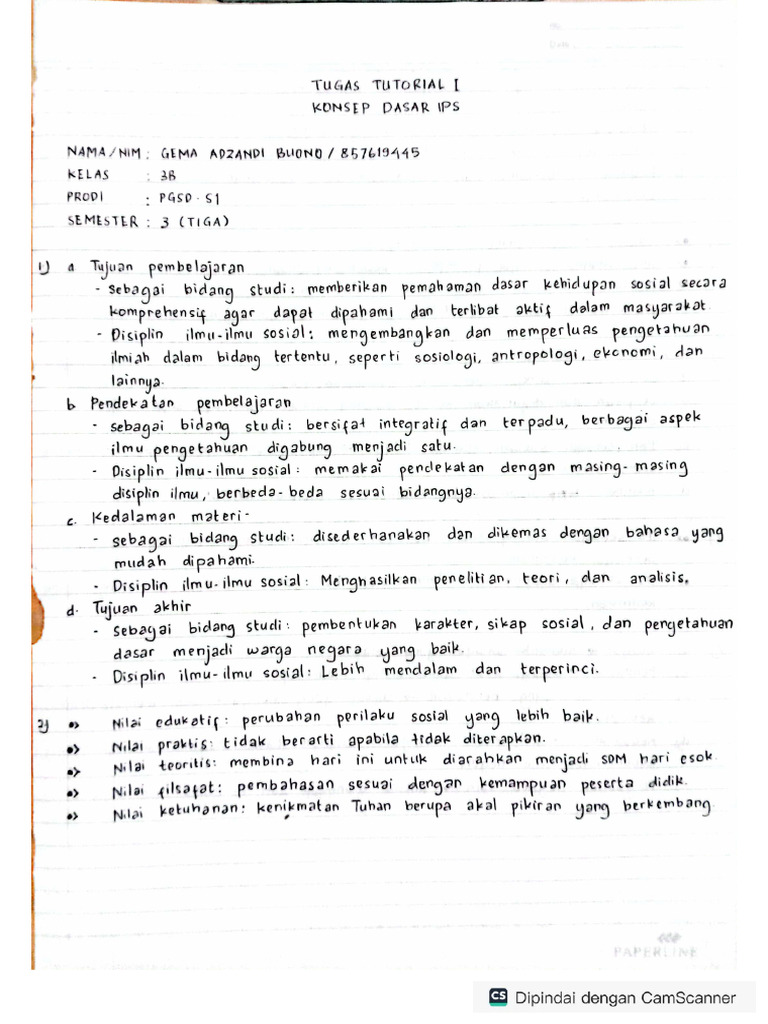 No.
Date
TUGAS TUTORIAL I
KONSEP DASAR IPS
NAMA/NIM : GEMA ADZANDI BUONO / 857619445
KELAS : 3B
PRODI : PGSD - S1
SEMESTER : 3 (TIGA)
1) a Tujuan pembelajaran
- sebagai bidang studi : memberikan pemahaman dasar kehidupan sosial secara
komprehensif agar dapat dipahami dan terlibat aktif dalam masyarakat.
- Disiplin ilmu-ilmu sosial : mengembangkan dan memperluas pengetahuan
ilmiah dalam bidang tertentu, seperti sosiologi, antropologi, ekonomi, dan
lainnya.
b Pendekatan pembelajaran
- sebagai bidang studi : bersifat integratif dan terpadu, berbagai aspek
ilmu pengetahuan digabung menjadi satu.
- Disiplin ilmu-ilmu sosial : memakai pendekatan dengan masing-masing
disiplin ilmu, berbeda-beda sesuai bidangnya.
c. Kedalaman materi -
- sebagai bidang studi : disederhanakan dan dikemas dengan bahasa yang
mudah dipahami.
- Disiplin ilmu-ilmu sosial : Menghasilkan penelitian, teori, dan analisis.
d. Tujuan akhir
- Sebagai bidang studi : pembentukan karakter, sikap sosial, dan pengetahuan
dasar menjadi warga negara yang baik.
- Disiplin ilmu-ilmu sosial : Lebih mendalam dan terperinci.
2) => Nilai edukatif : perubahan perilaku sosial yang lebih baik.
=> Nilai praktis : tidak berarti apabila tidak diterapkan.
=> Nilai teoritis : membina hari ini untuk diarahkan menjadi SDM hari esok.
=> Nilai filsafat : pembahasan sesuai dengan kemampuan peserta didik.
=> Nilai ketuhanan : kenikmatan Tuhan berupa akal pikiran yang berkembang.
PAPERLINE
CS Dipindai dengan CamScanner